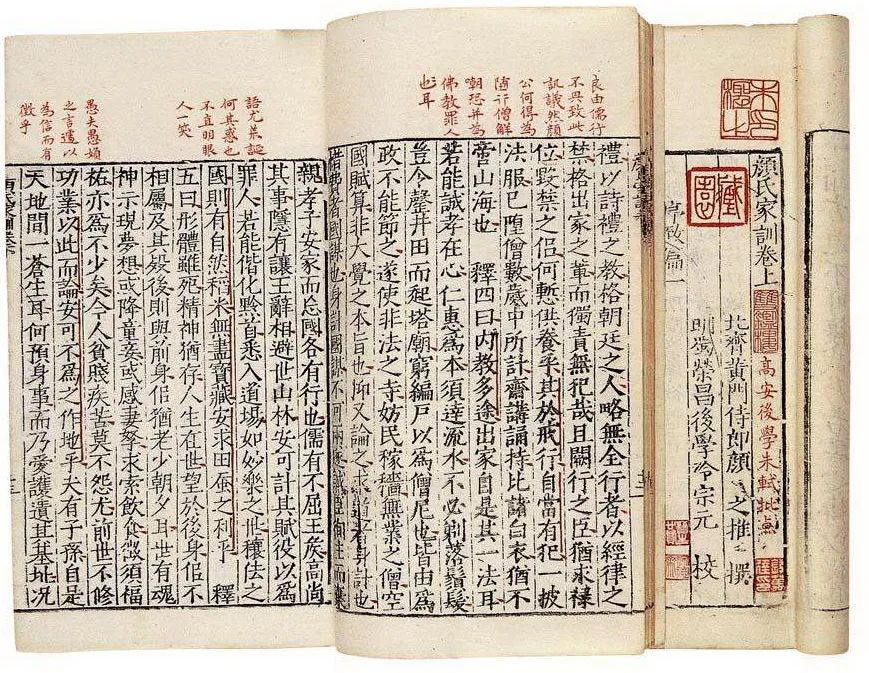 顏氏家訓卷上
北齊黃門侍郎顏之推 撰
明蜀榮昌後學冷宗元 校
高安後學朱軾批點
序致篇一
良由儒行
不興致此
議然顏
公何得為
僧解
嘲恐并為
佛教罪人
也耳
禮以詩禮之教格朝廷之人略無全行者以經律之
禁格出家之輩而獨責無犯哉且闕行之臣猶求祿
位毀禁之侶何慙供養乎其於戒行自當有犯一披
法服已墮僧數歲中所計齋講誦持比諸白衣猶不
啻山海也 釋四曰內教多途出家自是其一法耳
若能誠孝在心仁惠為本須達流水不必剃落鬚髮
豈令罄井田而起塔廟窮編戶以為僧尼也皆由為
政不能節之遂使非法之寺妨民稼穡無業之僧空
國賦算非大覺之本旨也抑又論之求道者身計也
惜費者國謀也身計國謀不可兩遂誠臣徇主而棄
語尤荒誕
何其惑也
不直明眼
人一笑
愚夫愚婦
之言遽以
為信而有
徵乎
親孝子安家而忘國各有行也儒有不屈王侯高尚
其事隱有讓王辭相避世山林安可計其賦役以為
罪人若能偕化黔首悉入道場如妙樂之世穰佉之
國則有自然稻米無盡寶藏安求田蠶之利乎 釋
五曰形體雖死精神猶存人生在世望於後身似不
相屬及其歿後則與前身似猶老少朝夕耳世有魂
神示現夢想或降童妾或感妻孥求索飲食徵須福
祐亦為不少矣今人貧賤疾苦莫不怨尤前世不修
功業以此而論安可不為之作地乎夫有子孫自是
天地間一蒼生耳何預身事而乃愛護遺其基址況